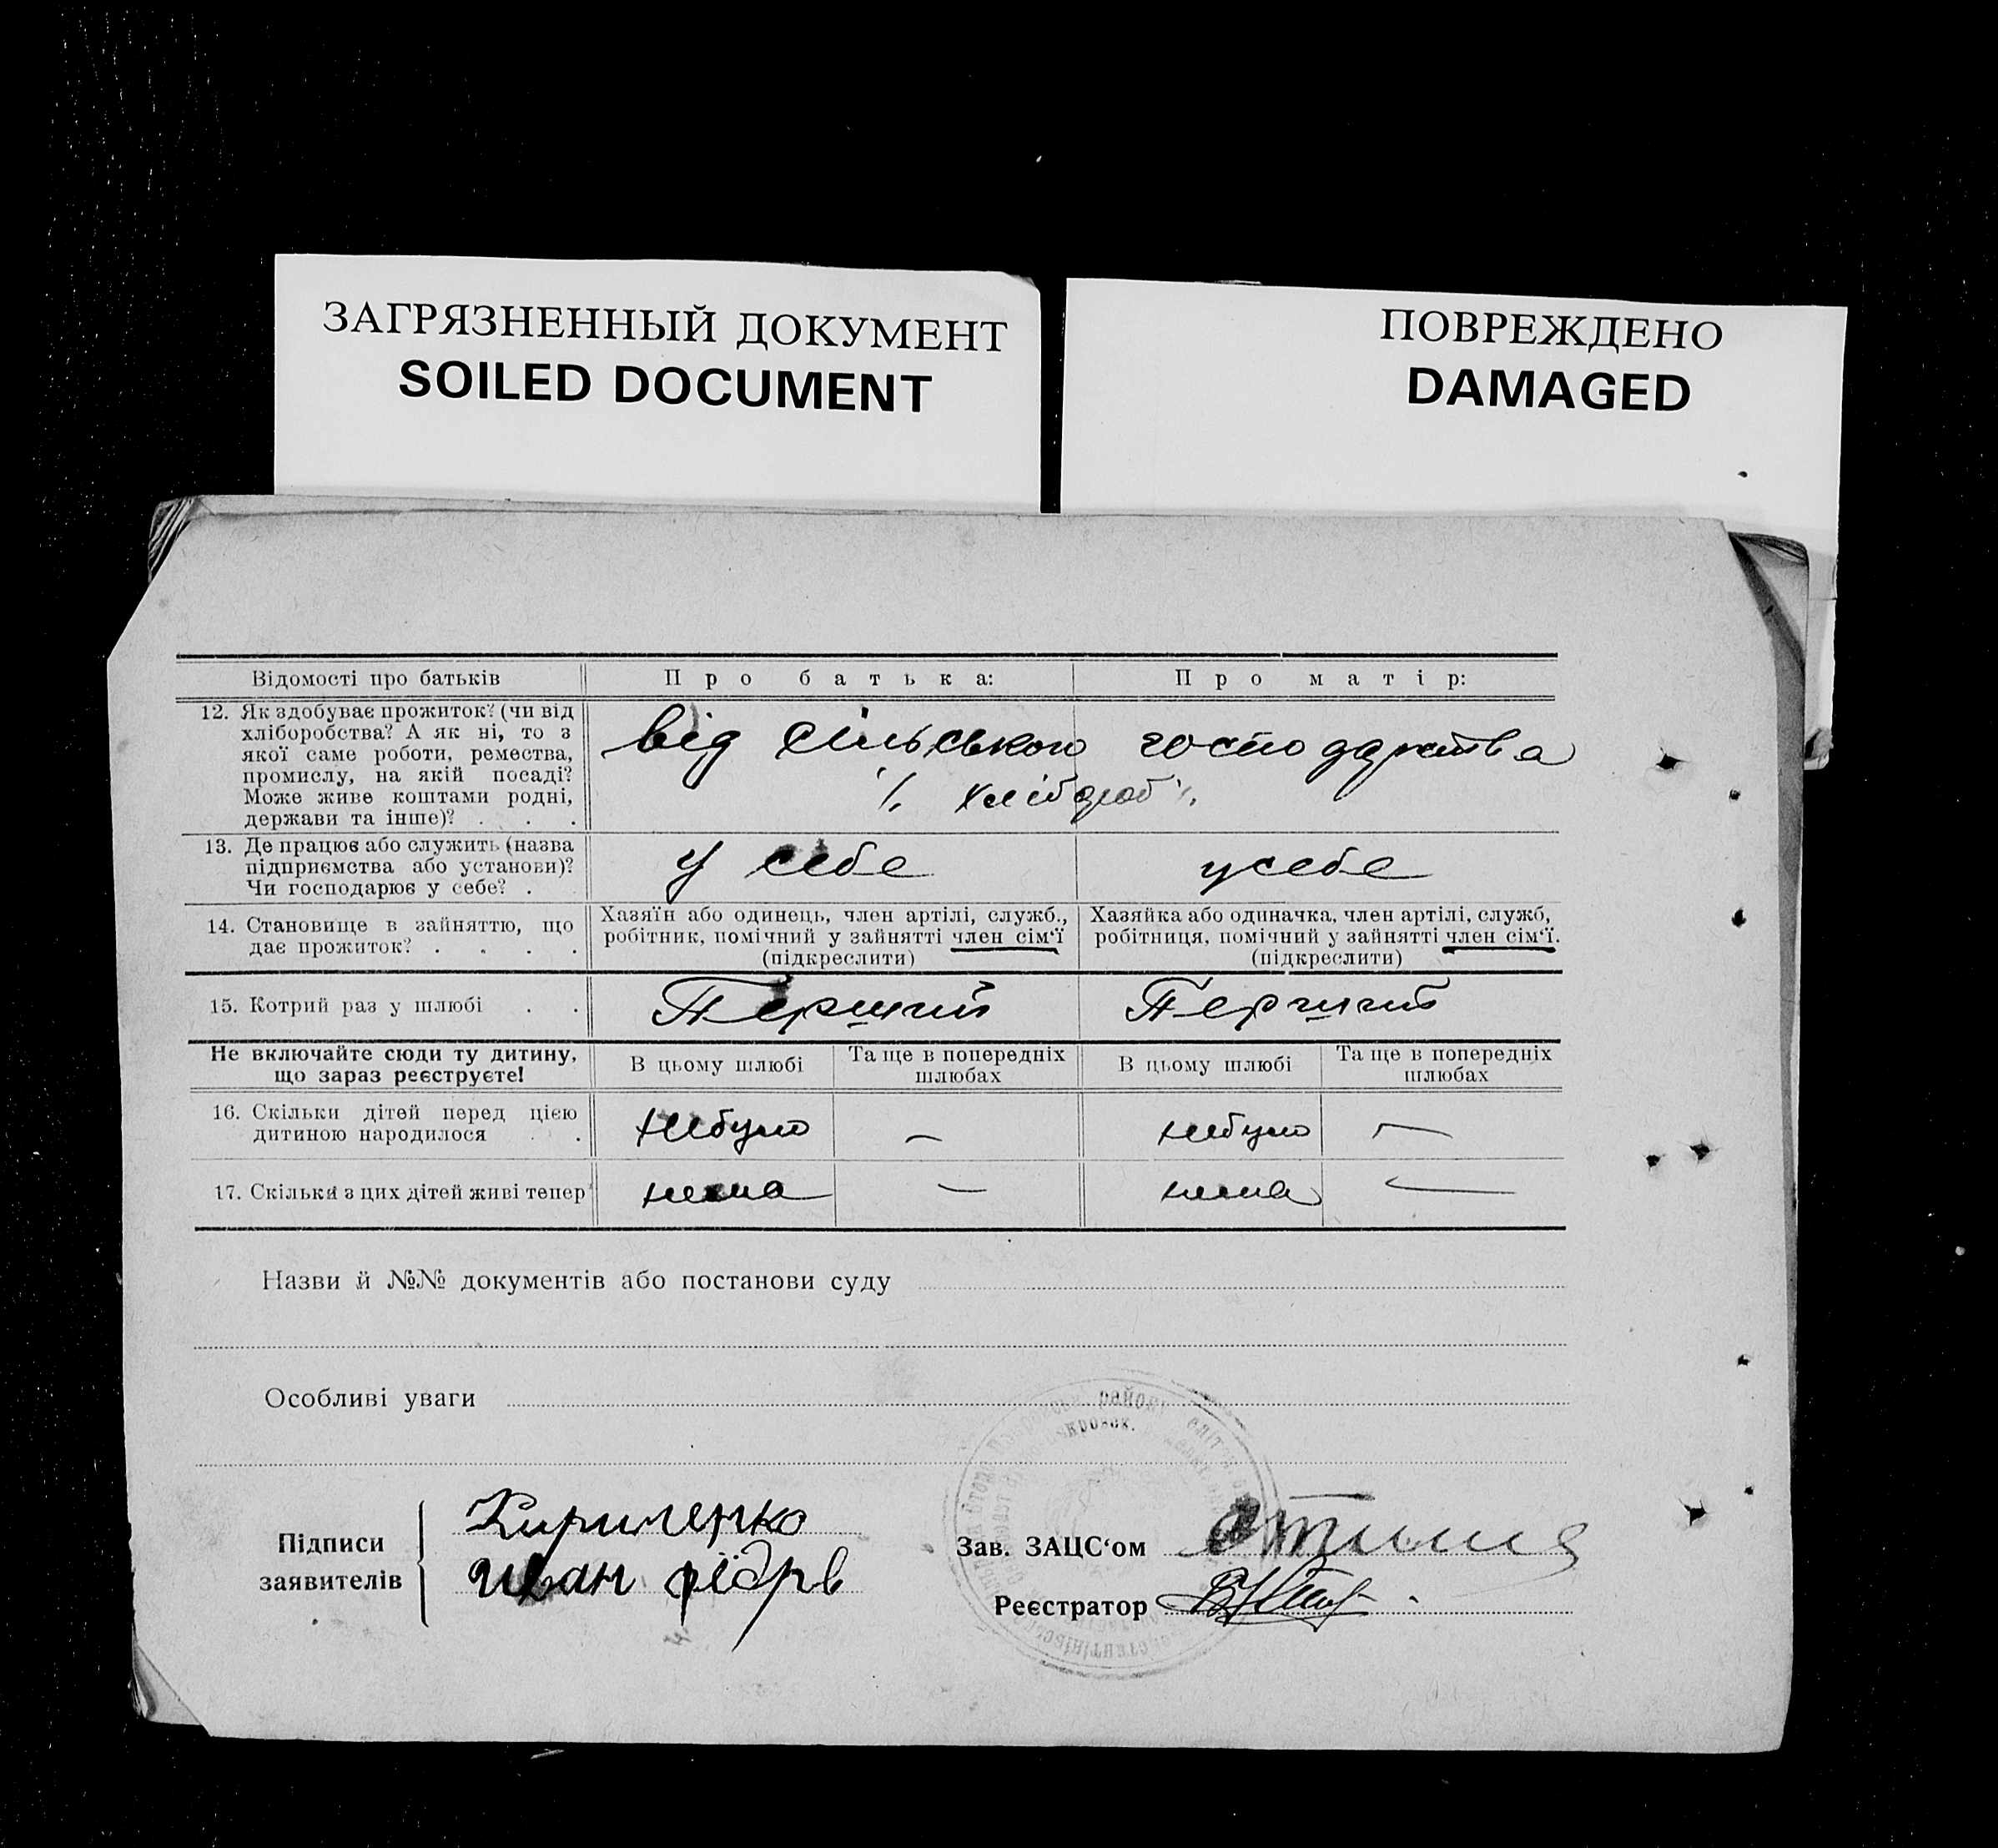 ЗАГРЯЗНЕННЫЙ ДОКУМЕНТ
SOILED DOCUMENT
ПОВРЕЖДЕНО
DAMAGED
Відомості про батьків
Про батька:
Про матір:
12. Як здобуває прожиток? (чи від
хліборобства? А як ні, то з
якої саме роботи, ремества,
промислу, на якій посаді?
Може живе коштами родні,
держави та інше)? . . .
від сільського господарства
хлібороб
13. Де працює або служить (назва
підприємства або установи)?
Чи господарює у себе? .
у себе
у себе
14. Становище в зайняттю, що
дає прожиток? . . . .
Хазяїн або одинець, член артілі, служб.,
робітник, помічний у зайнятті член сім‘ї
(підкреслити)
Хазяйка або одиначка, член артілі, служб,
робітниця, помічний у зайнятті член сім‘ї.
(підкреслити)
15. Котрий раз у шлюбі . .
Перший
Перший
Не включайте сюди ту дитину,
що зараз реєструєте!
В цьому шлюбі
Та ще в попередніх
шлюбах
В цьому шлюбі
Та ще в попередніх
шлюбах
16. Скільки дітей перед цією
дитиною народилося . .
небуло
—
небуло
—
17. Скільки з цих дітей живі тепер
нема
—
нема
—
Назви й №№ документів або постанови суду
Особливі уваги
Підписи
заявителів
Кириленко
Иван
Зав. ЗАЦС‘ом
Реєстратор